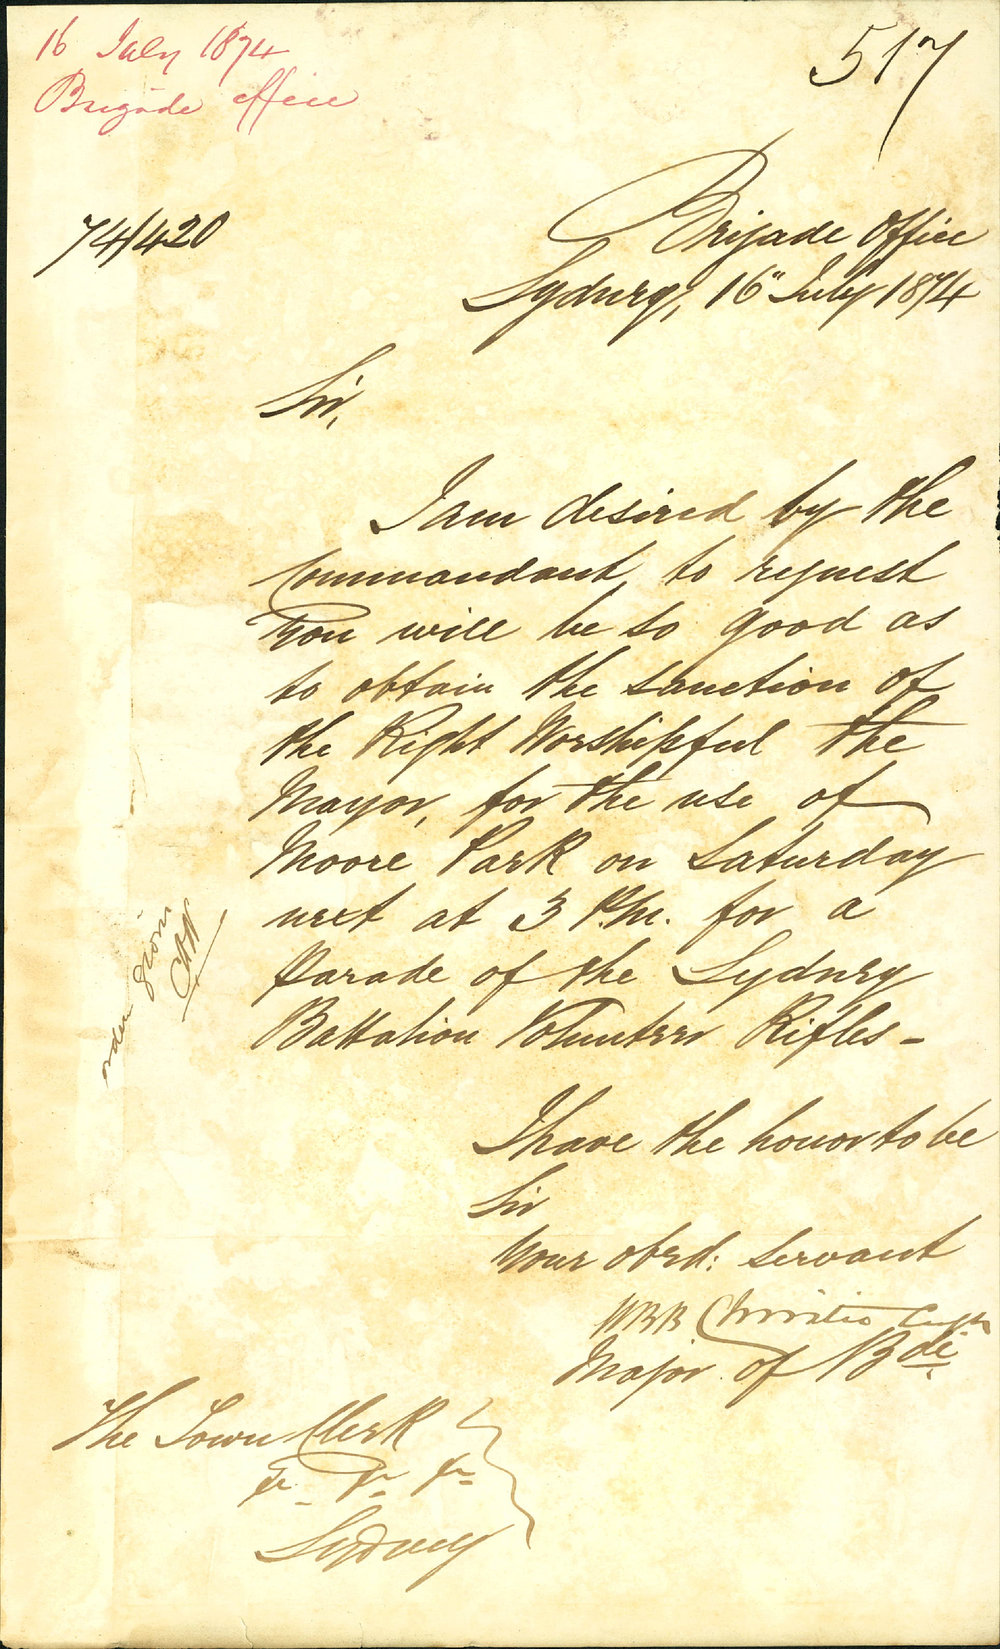 16 July 1874
Brigade office
517
74/420
Brigade Office
Sydney, 16" July 1874
Sir,
I am desired by the
Commandant, to request
you will be so good as
to obtain the sanction of
the Right Worshipful the
Mayor, for the use of
Moore Park on Saturday
next at 3 P.m. for a
Parade of the Sydney
Battalion Volunteer Rifles -
I have the honor to be
Sir
Your obed: servant
WBB Christie Captn
Major of Bde.
The Town Clerk
&c &c &c
Sydney
order given